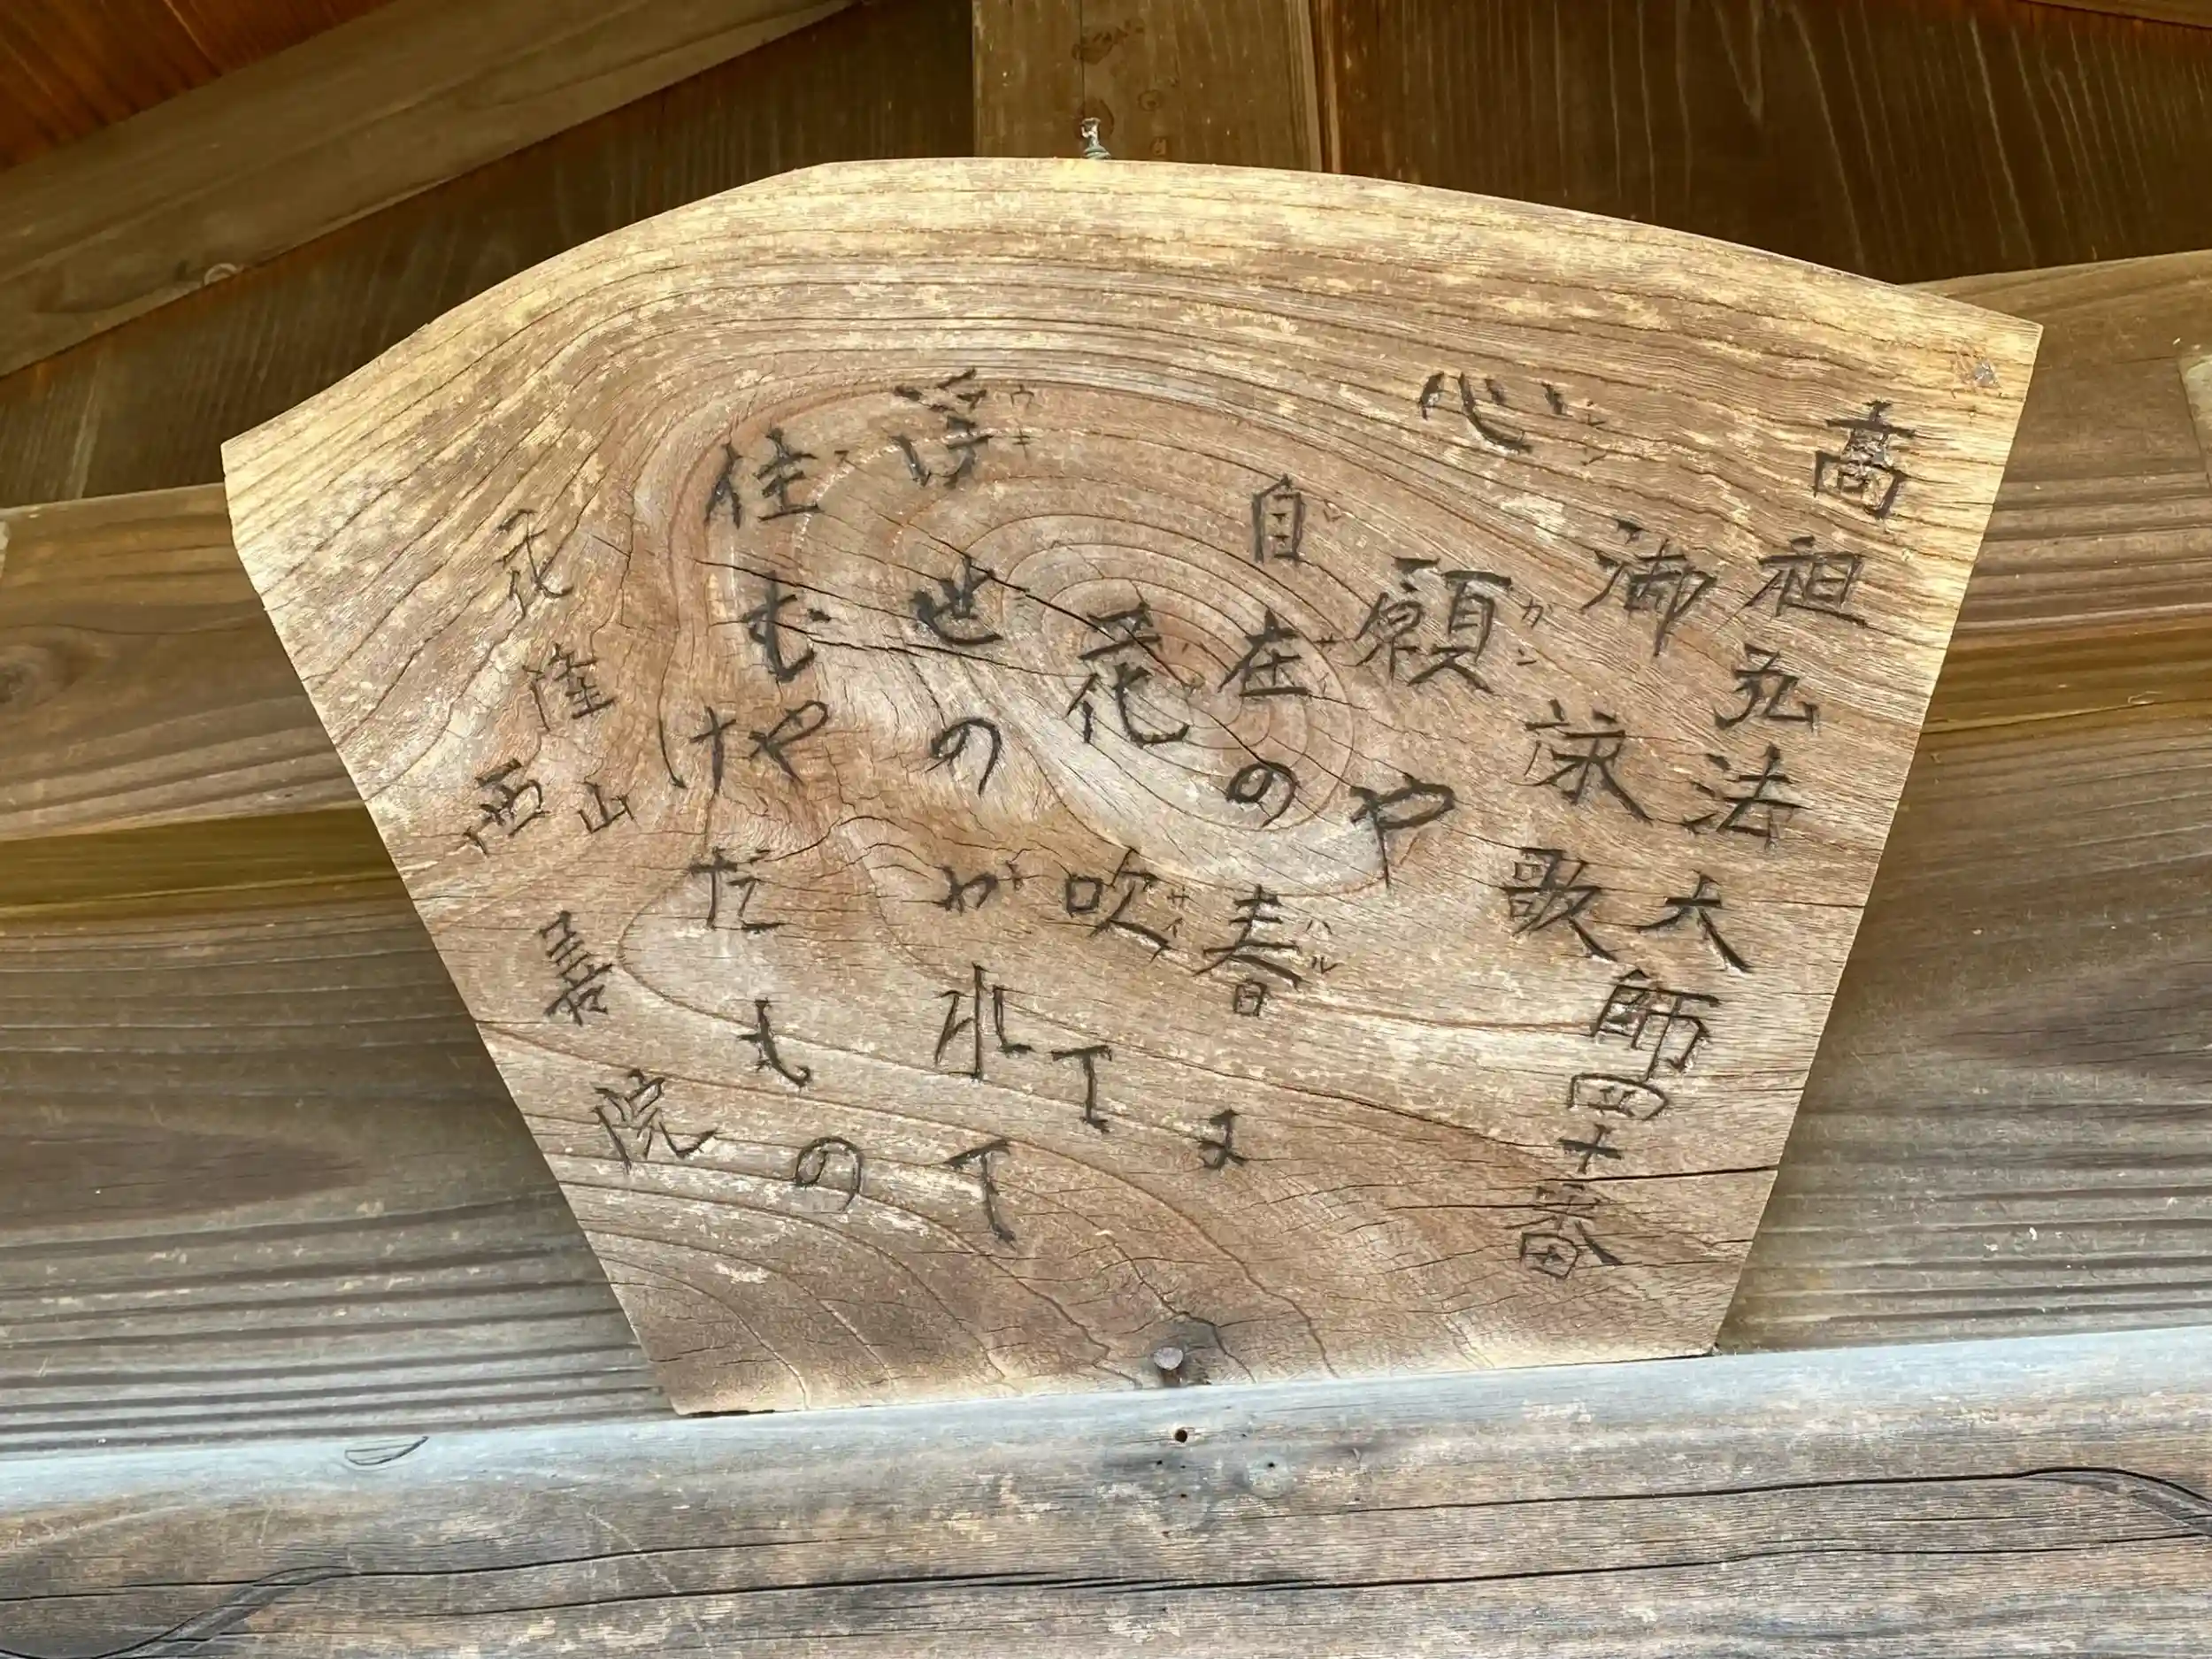 高祖弘法大師四十番
御詠歌
心願や
自在の春に
花吹て
浮世のがれて
住むやけだもの
花隆山
西善院